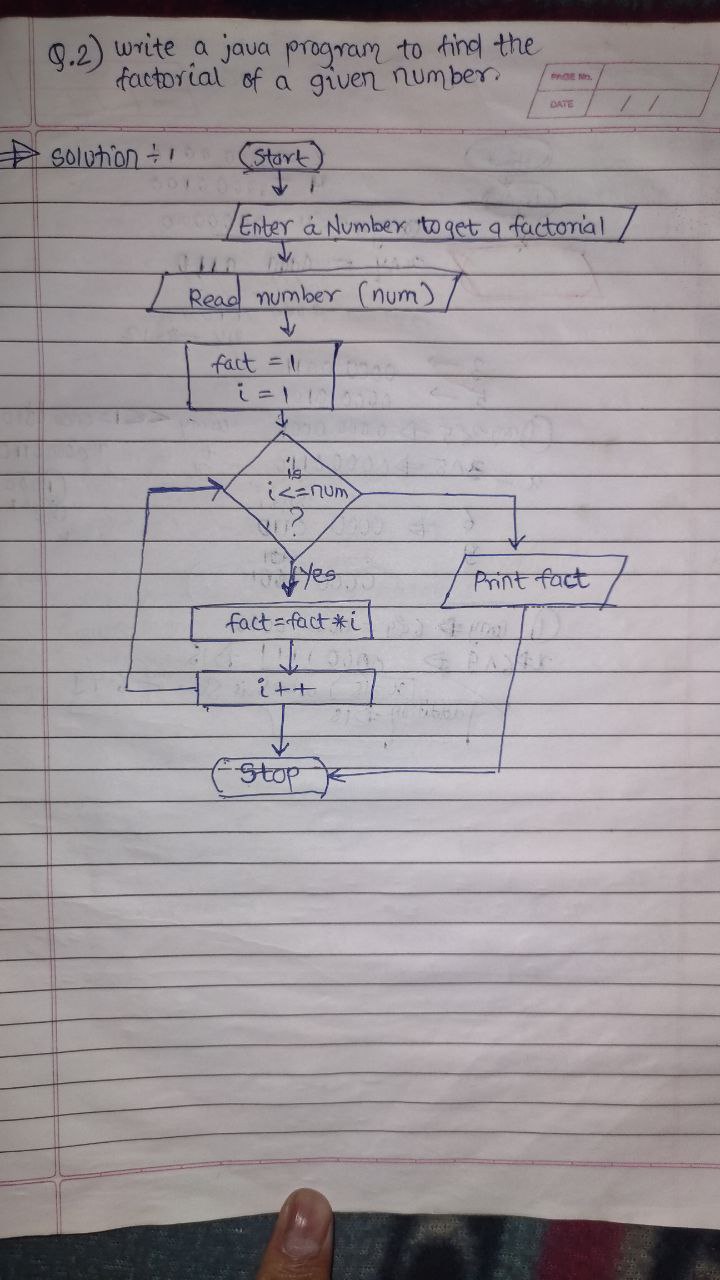 Q.2) write a java program to find the
factorial of a given number.
PAGE No.
DATE / /
⇒ solution ÷
Start
Enter a Number to get a factorial
Read number (num)
fact = 1
i = 1
is
i <= num
?
Yes
Print fact
fact = fact * i
i++
Stop